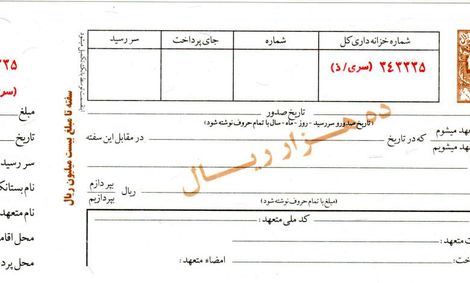 شماره خزانه داری کل
شماره
جای پرداخت
سر رسید
۲۴۲۲۲۵ (سری/ذ)
۲۲۵
(سر
سفته تا مبلغ بیست میلیون ریال
تاریخ صدور
(تاریخ صدور و سررسید - روز - ماه - سال با تمام حروف نوشته شود)
مبلغ
تاریخ
سر رسید
نام بستانک
نام متعهد
محل اقام
محل پرد
ده هزار ریال
هد میشوم
هد میشویم
که در تاریخ
در مقابل این سفته
ریال
بپردازم
بپردازیم
(مبلغ با تمام حروف نوشته شود)
کد ملی متعهد:
ت متعهد:
خت:
امضاء متعهد: